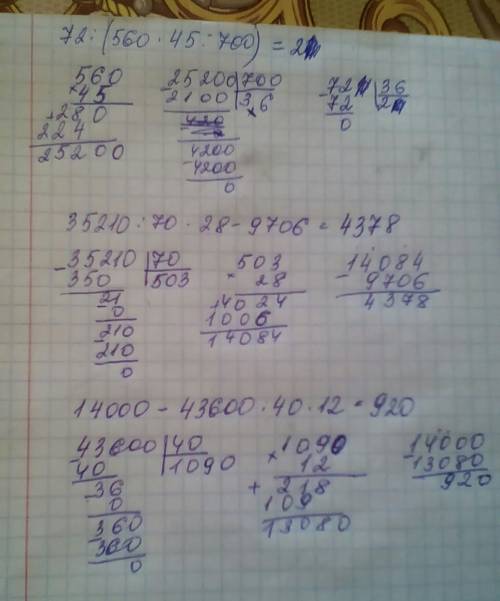 72:(560·45:700)=2
560
×45
280
224
25200
-25200 700
2100 36
420
4200
-4200
0
-72 36
72 2
0
35210:70·28-9706=4378
-35210 70
350 503
21
-0
210
-210
0
503
×28
4024
1006
14084
14084
-9706
4378
14000-43600·40·12=920
-43600 40
40 1090
-36
0
-360
360
0
×1090
12
+218
109
13080
-14000
13080
920